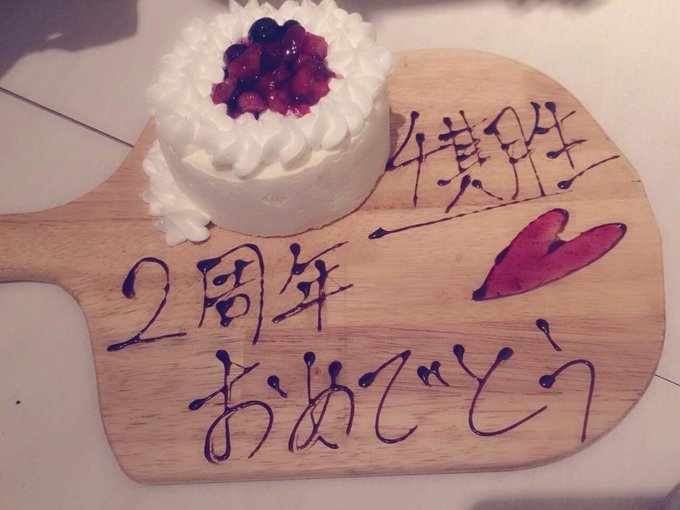 4期生
2周年
おめでとう